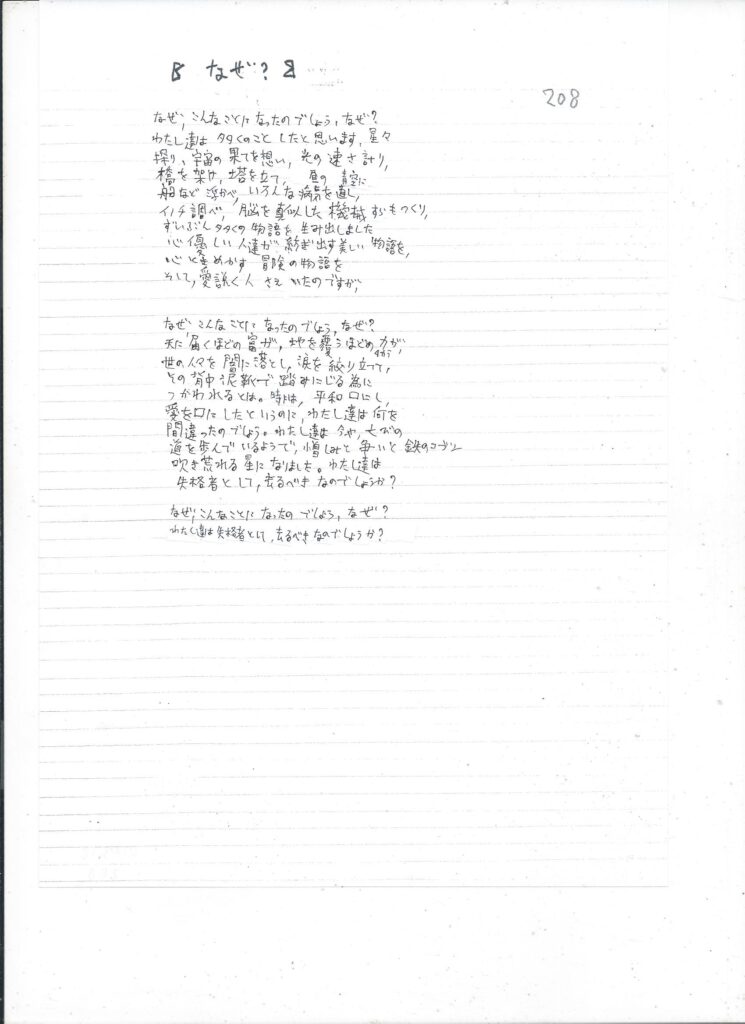 なぜ?
208
なぜ、こんなことになったのでしょう、なぜ?
わたし達は多くのことしたと思います、星々
探り、宇宙の果てを想い、光の速さ計り、
橋を架け、塔を立て、昼の青空に
船など浮かべ、いろんな病を直し、
イノチ調べ、脳を真似した機械すらもつくり、
ずいぶん多くの物語を生み出しました
心優しい人達が紡ぎ出す美しい物語を、
心ときめかす冒険の物語を
そして、愛説く人さえいたのですが、
なぜ、こんなことになったのでしょう、なぜ?
天に届くほどの富が、地を覆うほどの力が、
世の人々を闇に落とし、涙を絞り立て、
その背中泥靴で踏みにじる為に
つかわれるとは。時には、平和口にし、
愛を口にしたというのに、わたし達は何を
間違ったのでしょう。わたし達は今や、亡びの
道を歩んでいるようで、憎しみと争いと鉄の
吹き荒れる星になりました。わたし達は
失格者として、去るべきなのでしょうか?
なぜ、こんなことになったのでしょう、なぜ?
わたし達は失格者として、去るべきなのでしょうか?